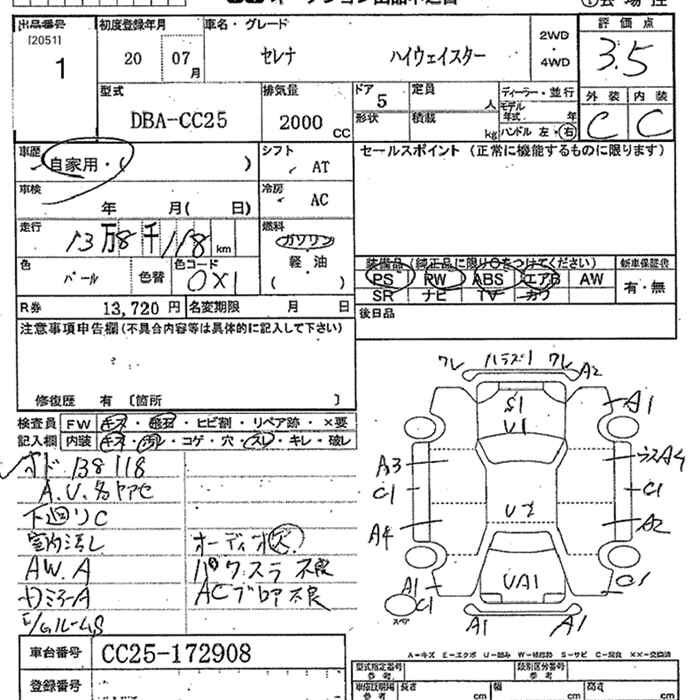 出品番号 [2051] 1
初度登録年月 20 07月
車名・グレード セレナ ハイウェイスター
2WD・4WD
評価点 3.5
外装 C 内装 C
型式 DBA-CC25
排気量 2000 cc
ドア 5 定員 人
形状 積載 kg
ディーラー・並行
モデル年式 年
ハンドル 左・右
車歴 自家用・( )
シフト AT
セールスポイント (正常に機能するものに限ります)
車検 年 月( 日)
冷房 AC
走行 13万8千118 km
燃料 ガソリン 軽・油 ( )
色 パール 色替 色コード 0X1
装備品(純正品に限り○をつけてください) 新車保証書
PS PW ABS エアB AW 有・無
SR ナビ TV カワ
R券 13,720円 名変期限 月 日
後日品
注意事項申告欄(不具合内容等は具体的に記入して下さい)
修復歴 有 〔箇所 〕
検査員 FW キズ・飛石・ヒビ割・リペア跡・×要
記入欄 内装 キズ・汚れ・コゲ・穴・スレ・キレ・破レ
A.U.多ヤセ
下廻リC
オーディオズ
AW.A
パワスラ不良
ACブロア不良
ワレ ワレ A2
S1 A1
U1
A3 A4
C1 C1
U2
A4 A2
A1 C1 UA1
スペア
A1 A1
A-キズ E-エクボ U-凹み W-補修跡 S-サビ C-腐食 ××-交換済
車台番号 CC25-172908
登録番号
型式指定番号 参考 類別区分番号 参考
車庫証明場 参考 長さ cm 幅 cm 高さ cm